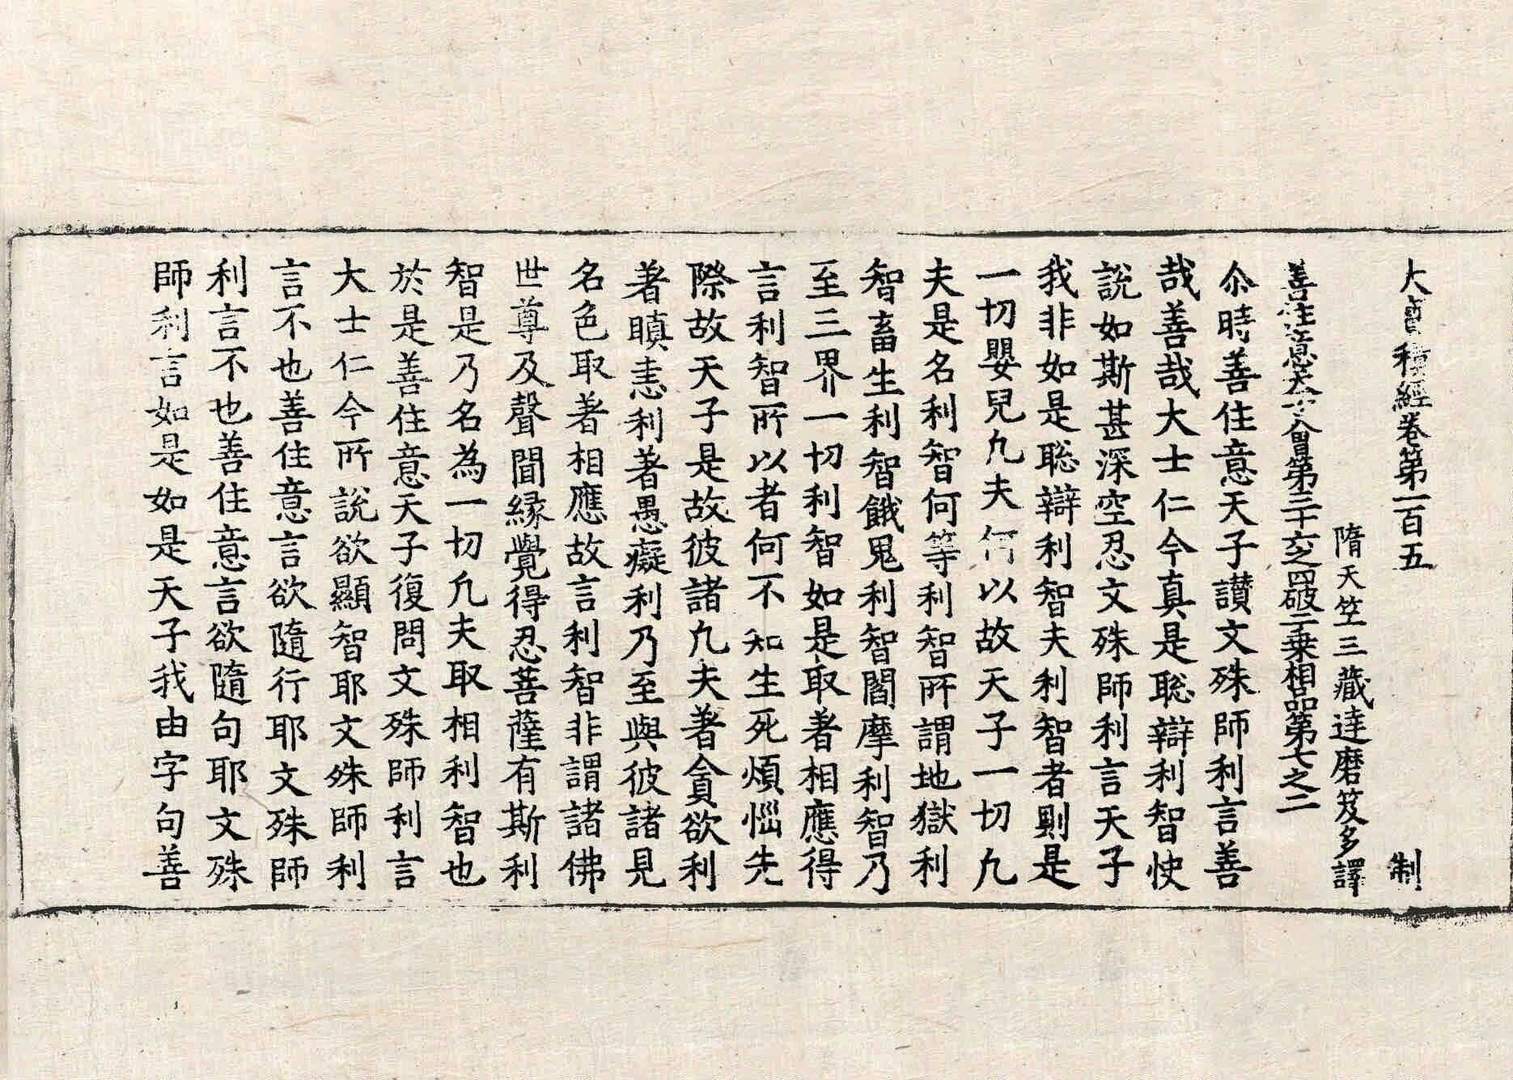 大寶積經卷第一百五 制
隋天竺三藏達磨笈多譯
善住意天子會第三十六之四破二乘相品第七之二
尒時善住意天子讃文殊師利言善
哉善哉大士仁今真是聡辯利智快
說如斯甚深空忍文殊師利言天子
我非如是聡辯利智夫利智者則是
一切嬰兒凢夫何以故天子一切凢
夫是名利智何等利智所謂地獄利
智畜生利智餓鬼利智閻摩利智乃
至三界一切利智如是取著相應得
言利智所以者何不知生死煩惱先
際故天子是故彼諸凢夫著貪欲利
著瞋恚利著愚癡利乃至與彼諸見
名色取著相應故言利智非謂諸佛
世尊及聲聞緣覺得忍菩薩有斯利
智是乃名為一切凢夫取相利智也
於是善住意天子復問文殊師利言
大士仁今所說欲顯智耶文殊師利
言不也善住意言欲隨行耶文殊師
利言不也善住意言欲隨句耶文殊
師利言如是如是天子我由字句善